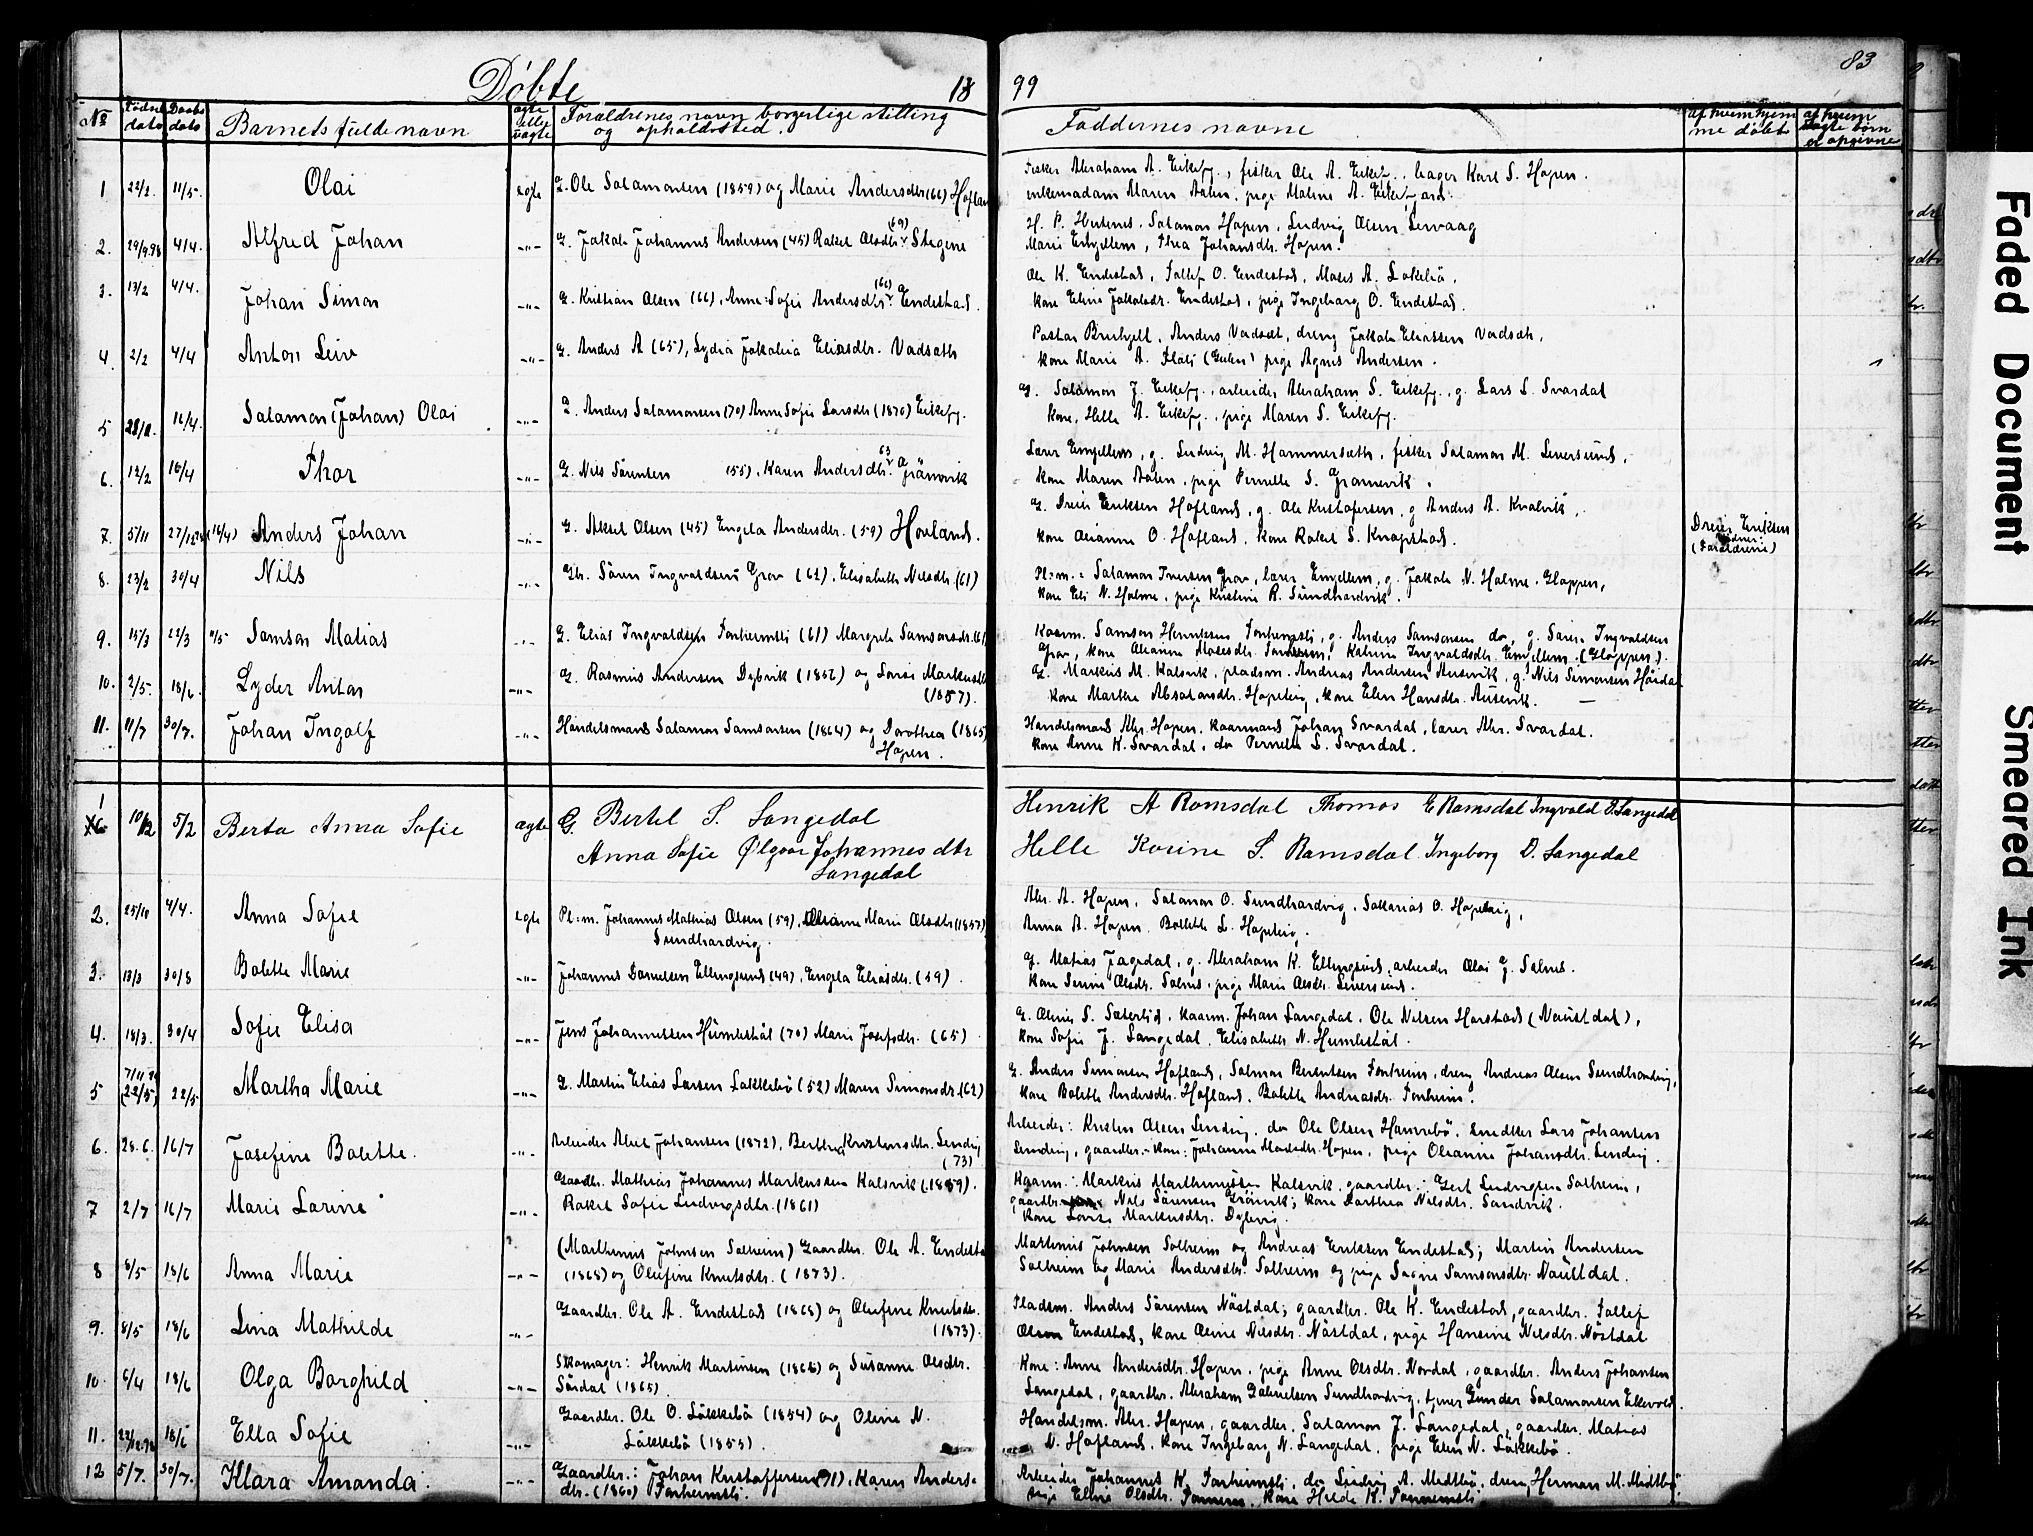 Døbte 18 99 83
No Fødsels dato Daabs dato Barnets fulde navn ægte eller uægte Forældrenes navn borgerlige stilling og opholdssted. Faddernes navne af hvem hjemme døbt
1 22/2. 11/5. Olai ægte G. Ole Salamonsen (1859) og Marie Andersdtr (66) Hofland
Fisker Abraham A. Eikefj., fisker Ole A. Eikef., bager Karl S. Hopen.
enkemadam Maren Aalen, pige Maline A. Eikefjord.
2. 29/9.98 4/4. Alfred Johan -"- G. Jakob Johannes Andersen (45) Rakel Olsdtr (69) Stegene
H. P. Husenes, Salamon Hopen, Ludvig Olsen Lervaag
Marie Engellem, Thea Johansdtr. Hopen.
3. 13/2 4/4. Johan Simon -"- G. Kristian Olsen (66), Anne Sofie Andersdtr (66) Endestad.
Ole K. Endestad, Tollef O. Endestad, Moses A. Løkebø,
kone Eline Jakobsdr. Endestad, pige Ingeborg O. Endestad.
4. 2/2 4/4 Anton Leiv -"- G. Anders A (65), Lydia Jakobia Eliasdtr. Vadsæth
Anders Vadsæt, dreng Jakob Eliassen Vadsæth,
kone Marie A. (Gulen) pige Agnes Andersen.
5 28/11. 16/4. Salamon (Johan) Olai -"- G. Anders Salamonsen (70) Anne Sofie Larsdtr (1870) Eikefj.
G. Salamon J. Eikefj., arbeider Abraham S. Eikefj., g. Lars L. Svardal
kone Helle A. Eikefj., pige Maren S. Eikefj.
6. 12/2 16/4 Thor -"- G. Nils Sørensen (55), Karen Andersdtr. 63 Grånevik
Lærer Engellem, g. Ludvig M. Hammersæth, fisker Salamon M. Leversund,
kone Maren Aalen, pige Pernelle S. Gramevik.
7. 5/11 27/12 98 (16/4) Anders Johan -"- G. Aksel Olsen (45) Engela Andersdtr. (59) Hovland.
G. Dreier Eriksen Hofland, g. Ole Kristofersen, g Anders A. Kvalvik,
kone Oleanne O. Hofland, kone Rakel S. Knapstad.
Dreier Eriksen
(Forældrene)
8. 23/2 30/4 Nils -"- Gbr. Søren Ingvaldsen Grov (62), Elisabeth Nilsdtr. (61)
Pl.m.: Salamon Iversen Grov, lærer Engellem, g. Jakob N. Holme, Gloppen,
kone Eli N. Holme, pige Kristine R. Sundhordvik.
9. 15/3 22/3 Samson Matias -"- G. Elias Ingvaldsen Tonheimsli (61) Margrete Samsonsdr. (61)
Kaarm. Samson Henriksen Tonheimsli, g. Anders Samsonsen do, g. Søren Ingvaldsen
Grov, kone Oleanne Mosesdtr. Katrine Ingvaldsdtr. Engellem. (Gloppen).
10. 2/5. 18/6. Lyder Anton -"- G. Rasmus Andersen Dybvik (1862) og Lovise Markusdtr
(1857).
G. Markus M. Kalsvik, pladsm. Andreas Andersen Ausevik, g. Nils Simonsen Hordal
kone Marthe Absalonsdtr. Hopeteig, kone Elen Hansdtr. Ausevik.
11. 11/7 30/7. Johan Ingolf -"- Handelsmand Salamon Samsonsen (1864) og Dorothea (1865)
Hopen.
Handelsmand Abr. Hopen, kaarmand Johan Svardal, lærer Abr. Svardal.
kone Anne K. Svardal, do Pernella L. Svardal.
1 10/12 5/2 Berta Anna Sofie ægte G. Bertel S. Langedal
Anna Sofie Ølgaar Johannesdtr
Langedal
Henrik A Ramsdal Thomas E Ramsdal Ingvald D. Langedal
Helle Karine S. Ramsdal Ingeborg D. Langedal
2. 25/10 4/4. Anna Sofie ægte Pl.m. Johannes Mathias Olsen (59), Oleanne Marie Olsdtr (1857)
Sundhordvig.
Abr. A. Hopen, Salamon O. Sundhordvig, Sakarias O. Hopeteig,
Anna A. Hopen, Bolette L. Hopeteig.
3. 13/3 30/8 Bolette Marie -"- Johannes Danielsen Ellingsund (49), Engela Eliasdtr. (59).
g. Matias Fagedal, g. Abraham K. Ellingsund, arbeider Olai G. Solnes.
kone Serine Olsdtr. Solnes, pige Marie Olsdtr. Leversund.
4. 18/3. 30/4 Sofie Elisa -"- Jens Johannessen Humlestøl (70) Marie Josefsdtr. (65)
G. Olinies S. Sæterlid, kaarm. Johan Langedal, Ole Nilsen Horstad (Naustdal),
kone Sofie J. Langedal, Elisabeth N. Humlestøl.
5 7/11 98 (22/5) 22/5 Martha Marie -"- G. Martin Elias Larsen Løkkebø (52) Maren Simonsdr. (62)
G. Anders Simonsen Hofland, Salmon Berentsen Tonheim, dreng Andreas Olsen Sundhordvig,
kone Bolette Andersdtr. Hofland, Bolette Andreasdtr. Tonheim.
6. 28.6. 16/7 Josefine Bolette. -"- Arbeider Abel Johansen (1872), Berthea Kristensdtr. Lending
(73)
Arbeider: Kristen Olsen Lending, do Ole Olsen Hannebø, snedker Lars Johansen
Lending, gaardbr.-kone: Johanne Mosesdtr. Hopen, pige Oleanne Johansdtr. Lending.
7 2/7 16/7 Marie Lovise -"- Gaardbr. Mathias Johannes Markussen Kalsvik (1859).
Rakel Sofie Ludvigsdtr. (1861)
Kaarm.: Markus Marthinussen Kalsvik, gaardbr.: Gert Ludvigsen Solheim,
gaardbr. Nils Sørensen Grønvik; kone Dorthea Nilsdtr. Sandvik.
kone Lovise Markusdtr. Dybvig.
8 8/5 18/6 Anna Marie -"- (Marthinus Johnsen Solheim) Gaardbr. Ole A. Endestad
(1868) og Olufine Knutsdtr. (1873).
Martinus Johnsen Solheim og Andreas Eriksen Endestad; Martin Andersen
Solheim og Marie Andersdtr. Solheim og pige Sagne Samsonsdtr. Naustdal.
9. 8/5 18/6 Lina Mathilde -"- Gaardbr. Ole A. Endestad (1868) og Olufine Knutsdtr.
(1873).
Pladsm. Anders Sørensen Nøstdal; gaardbr. Ole K. Endestad, gaardbr. Tollef
Olsen Endestad, kone Oline Nilsdtr. Nøstdal, pige Hansine Nilsdtr. Nøstdal
10. 6/4 18/6 Olga Borghild -"- Skomager: Henrik Martinsen (1868) og Susanne Olsdtr.
Sørdal (1865).
Kone: Anne Andersdtr. Hopen, pige Anne Olsdtr. Nordal, gaardbr. Anders Johansen
Langedal, gaardbr. Abraham Gabrielsen Sundhordvig, tjener Gunder Salamonsen Eikevold.
11. 22/12.98 18/6 Ella Sofie -"- Gaardbr. Ole O. Løkkebø (1854) og Oline N.
Løkkebø (1853).
Handelsm. Abr. Hopen, gaardbr. Salamon J. Langedal, gaardbr. Matias
N. Hofland, kone Ingeborg N. Langedal, pige Elen N. Løkkebø.
12 5/7. 30/7. Klara Amanda. -"- Gaardbr.: Johan Kristoffersen (71), Karen Anders-
dtr. (1860) Tonheimsli.
Arbeider Johannes K. Tonheimsli, do Ludvig A. Midtbø, dreng Herman M. Midtbø,
pige Eline Olsdtr. kone Helde K. Tonheimsli
Faded Document
Smeared Ink